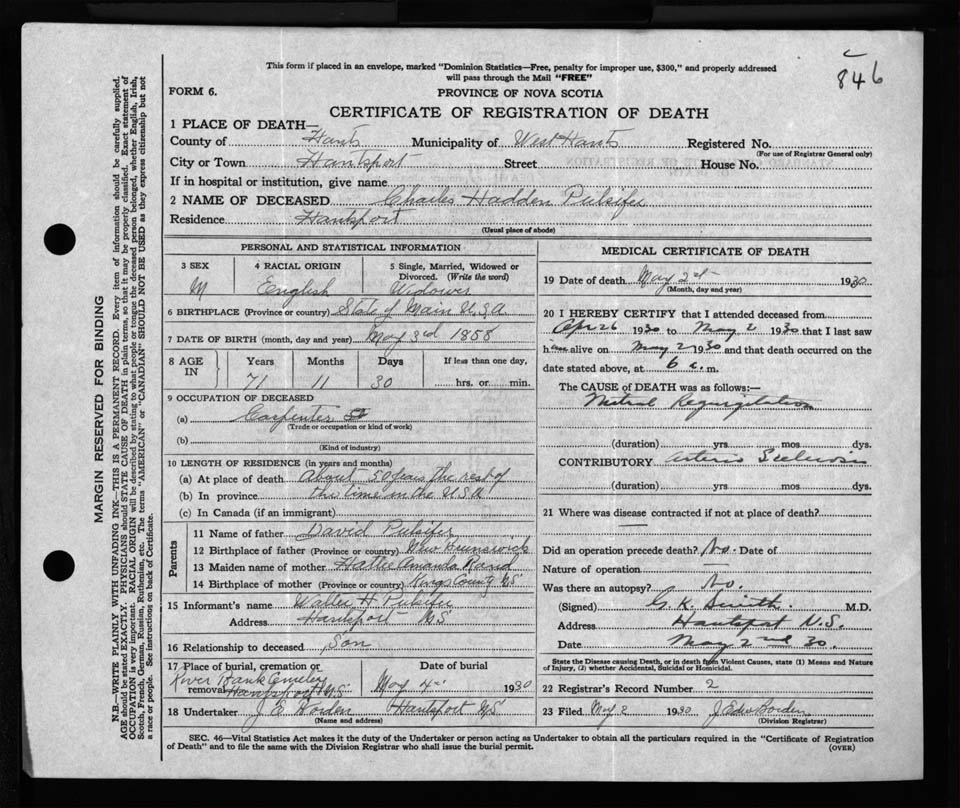 846
This form if placed in an envelope, marked "Dominion Statistics—Free, penalty for improper use, $300," and properly addressed
will pass through the Mail "FREE"
FORM 6.
PROVINCE OF NOVA SCOTIA
CERTIFICATE OF REGISTRATION OF DEATH
1 PLACE OF DEATH—
County of Hants Municipality of West Hants Registered No.
(For use of Registrar General only)
City or Town Hantsport Street House No.
If in hospital or institution, give name
2 NAME OF DECEASED Charles Hadden Pulsifer
Residence Hantsport
(Usual place of abode)
MARGIN RESERVED FOR BINDING
N.B.—WRITE PLAINLY WITH UNFADING INK—THIS IS A PERMANENT RECORD. Every item of information should be carefully supplied.
AGE should be stated EXACTLY. PHYSICIANS should STATE CAUSE OF DEATH in plain terms, so that it may be properly classified. Exact statement of
OCCUPATION is very important. RACIAL ORIGIN will be described by stating to what people or tongue the deceased person belonged, whether English, Irish,
Scotch, French, German, Russian, Ruthenian, etc. The terms "AMERICAN" or "CANADIAN" SHOULD NOT BE USED as they express citizenship but not
a race or people. See instructions on back of Certificate.
PERSONAL AND STATISTICAL INFORMATION
3 SEX 4 RACIAL ORIGIN 5 Single, Married, Widowed or
Divorced. (Write the word)
M English Widower
6 BIRTHPLACE (Province or country) State of Main U.S.A
7 DATE OF BIRTH (month, day and year) May 3rd 1858
8 AGE IN Years Months Days If less than one day,
71 11 30 hrs. or min.
9 OCCUPATION OF DECEASED
(a) Carpenter
(Trade or occupation or kind of work)
(b)
(Kind of industry)
10 LENGTH OF RESIDENCE (in years and months)
(a) At place of death About 50 years the rest of
(b) In province the time in the U.S.A
(c) In Canada (if an immigrant)
Parents
11 Name of father David Pulsifer
12 Birthplace of father (Province or country) New Brunswick
13 Maiden name of mother Hattie Amanda Rand
14 Birthplace of mother (Province or country) Kings County NS
15 Informant's name Walter H Pulsifer
Address Hantsport NS
16 Relationship to deceased Son
17 Place of burial, cremation or Date of burial
River Bank Cemetery
removal Hantsport NS May 4 1930
18 Undertaker J E Borden Hantsport NS
(Name and address)
MEDICAL CERTIFICATE OF DEATH
19 Date of death May 2nd 1930
(Month, day and year)
20 I HEREBY CERTIFY that I attended deceased from
Apr 26 1930 to May 2 1930 that I last saw
him alive on May 2 1930 and that death occurred on the
date stated above, at 6 a.m.
The CAUSE OF DEATH was as follows:—
Mitral Regurgitation
(duration) yrs mos dys.
CONTRIBUTORY Arterio
(duration) yrs mos dys.
21 Where was disease contracted if not at place of death?
Did an operation precede death? No. Date of
Nature of operation —
Was there an autopsy? No.
(Signed) G. K. Smith. M.D.
Address Hantsport N.S.
Date May 2nd 30
State the Disease causing Death, or in death from Violent Causes, state (1) Means and Nature
of Injury, (2) whether Accidental, Suicidal or Homicidal.
22 Registrar's Record Number 2
23 Filed May 2 1930 J Edw Borden
(Division Registrar)
SEC. 46—Vital Statistics Act makes it the duty of the Undertaker or person acting as Undertaker to obtain all the particulars required in the "Certificate of Registration
of Death" and to file the same with the Division Registrar who shall issue the burial permit.
(OVER)